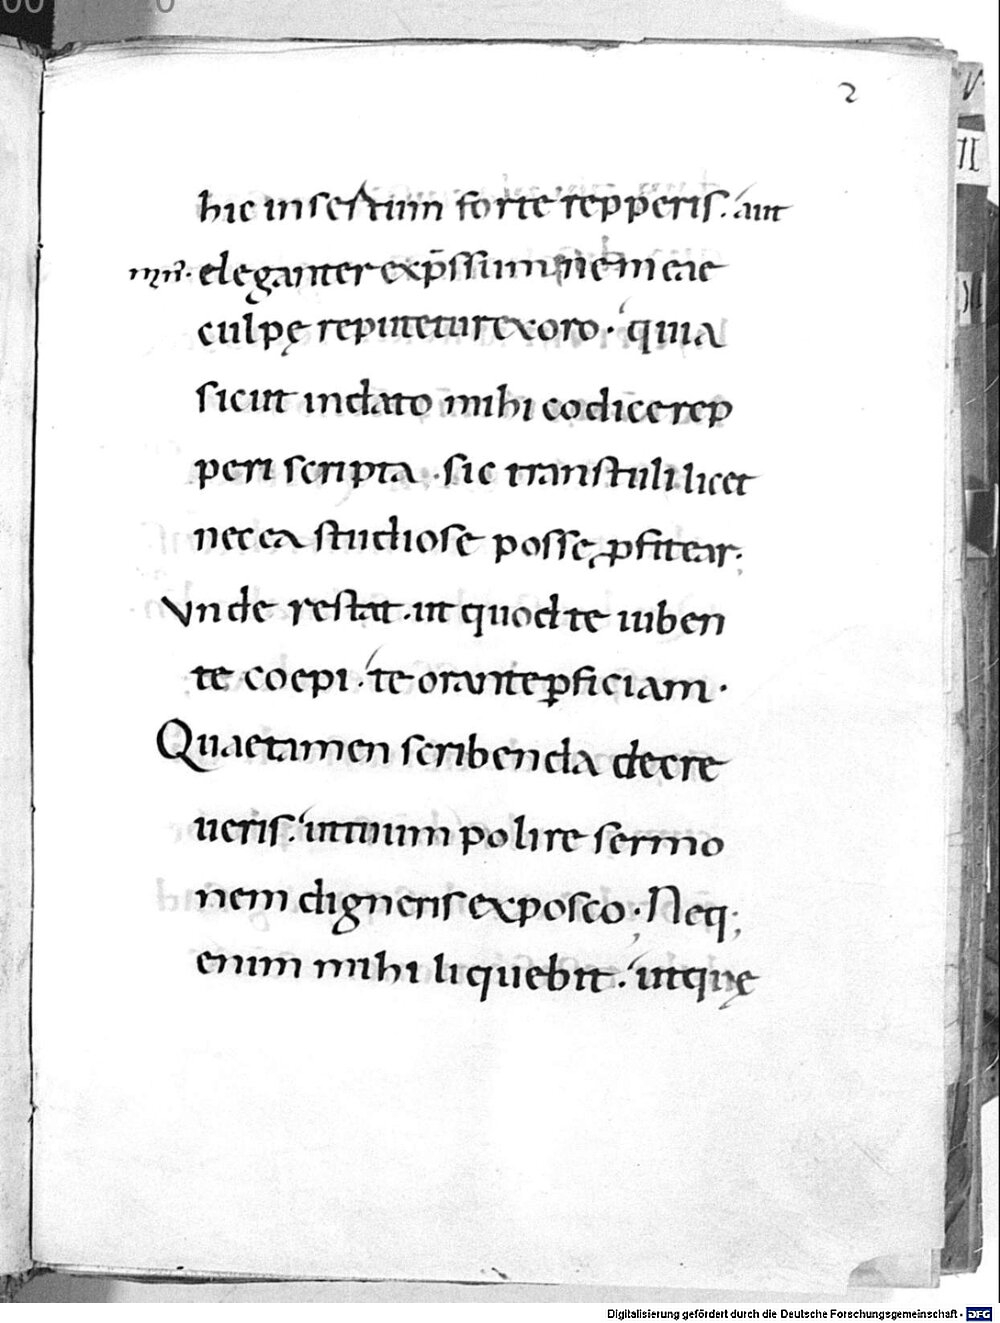 2
hic insertum forte repperis. aut
min̄. eleganter exp̄ssum ne meae
culpę repinetur exoro. quia
sicut in dato mihi codice rep
peri scripta. sic transtuli licet
nec ea studiose posse ꝓfitear.
Vnde restat. ut quod te iuben
te coepi. te orante ꝑficiam.
Quae tamen scribenda decre
ueris. intuum polire sermo
nem digneris exposco. Neq;
enim mihi liquebit. utquę
Digitalisierung gefördert durch die Deutsche Forschungsgemeinschaft - DFG